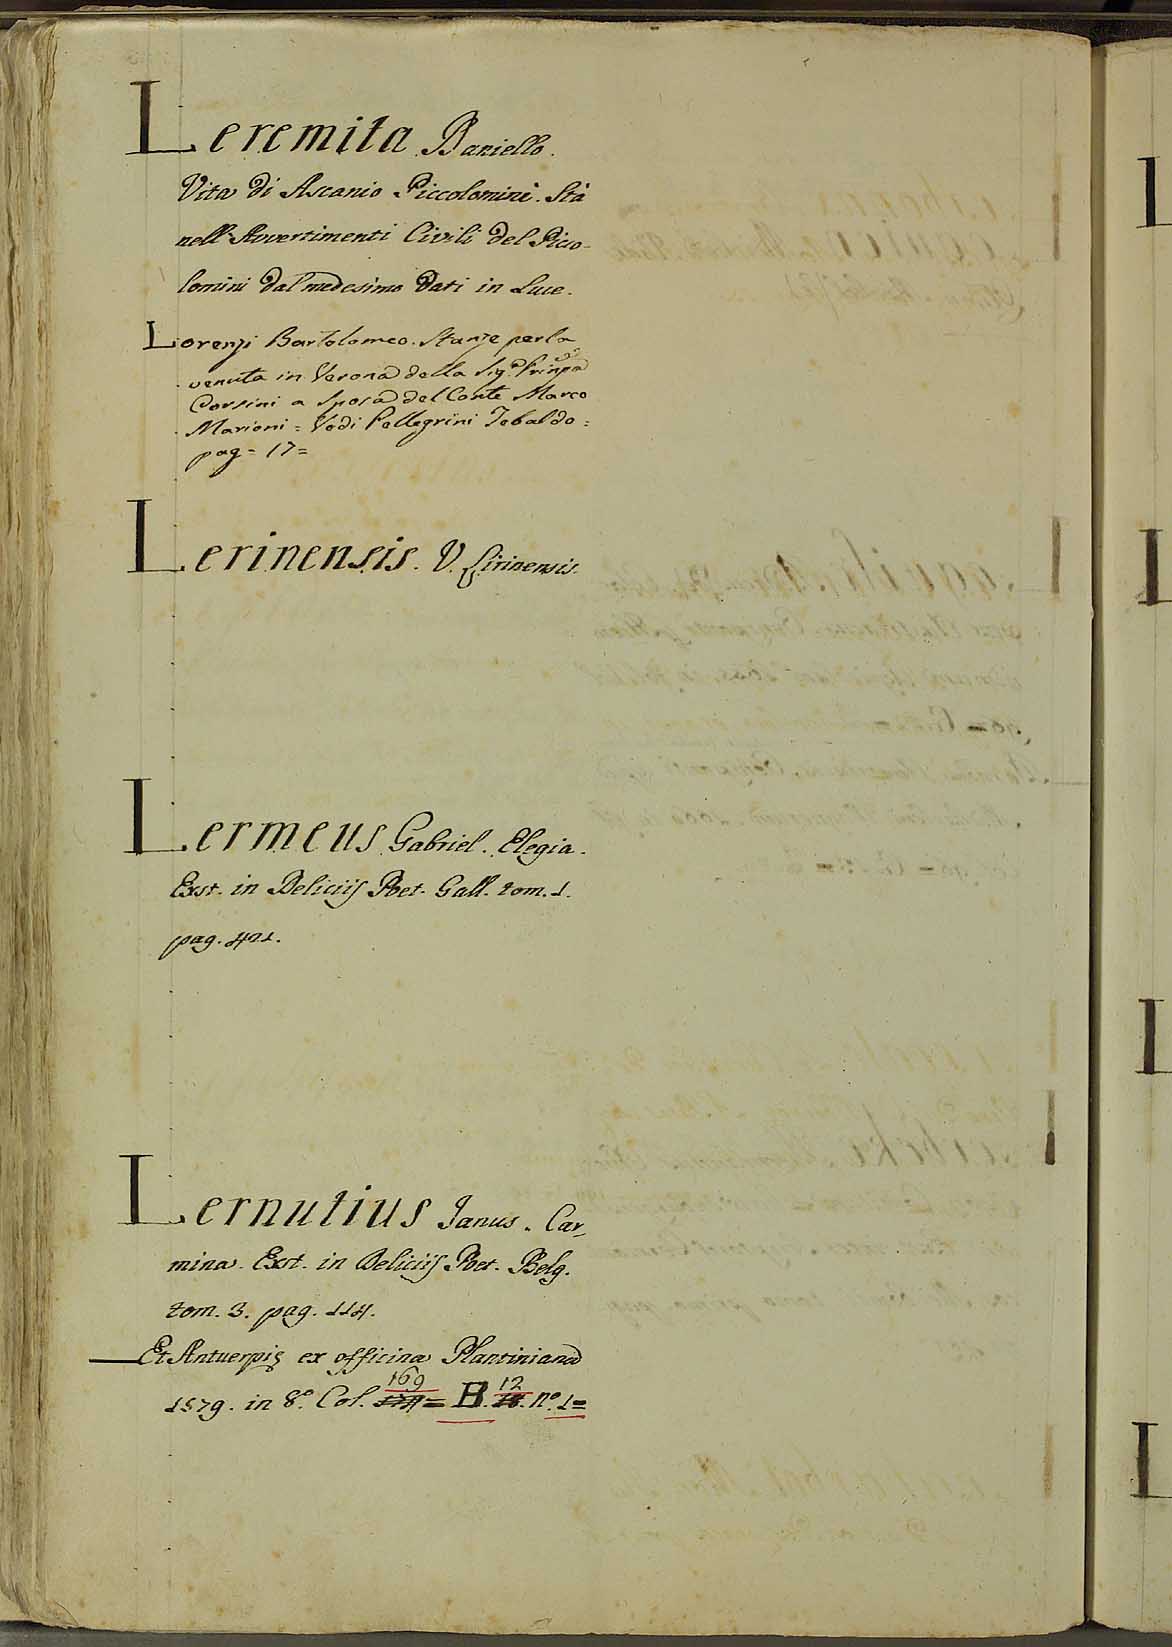 Leremita Daniello.
Vita di Ascanio Piccolomini. Stà
nell'Avvertimenti Civili del Picco-
lomini dal medesimo dati in Luce.
Lorenzi Bartolomeo. Stanze per la
venuta in Verona della Sig.ª
Corsini a Sposa del Conte Marco
Marioni = Vedi Pellegrini Tebaldo =
pag = 17 =
Lerinensis. V. Lirinensis.
Lermeus Gabriel. Elegia.
Exst. in Deliciis Poet. Gall. tom. 1.
pag. 421.
Lernutius Janus. Car-
mina. Exst. in Deliciis Poet. Belg.
tom. 3. pag. 114.
Et Antuerpię ex officina Plantiniana
169 12
1579. in 8.º Col. = B. nº. 1=